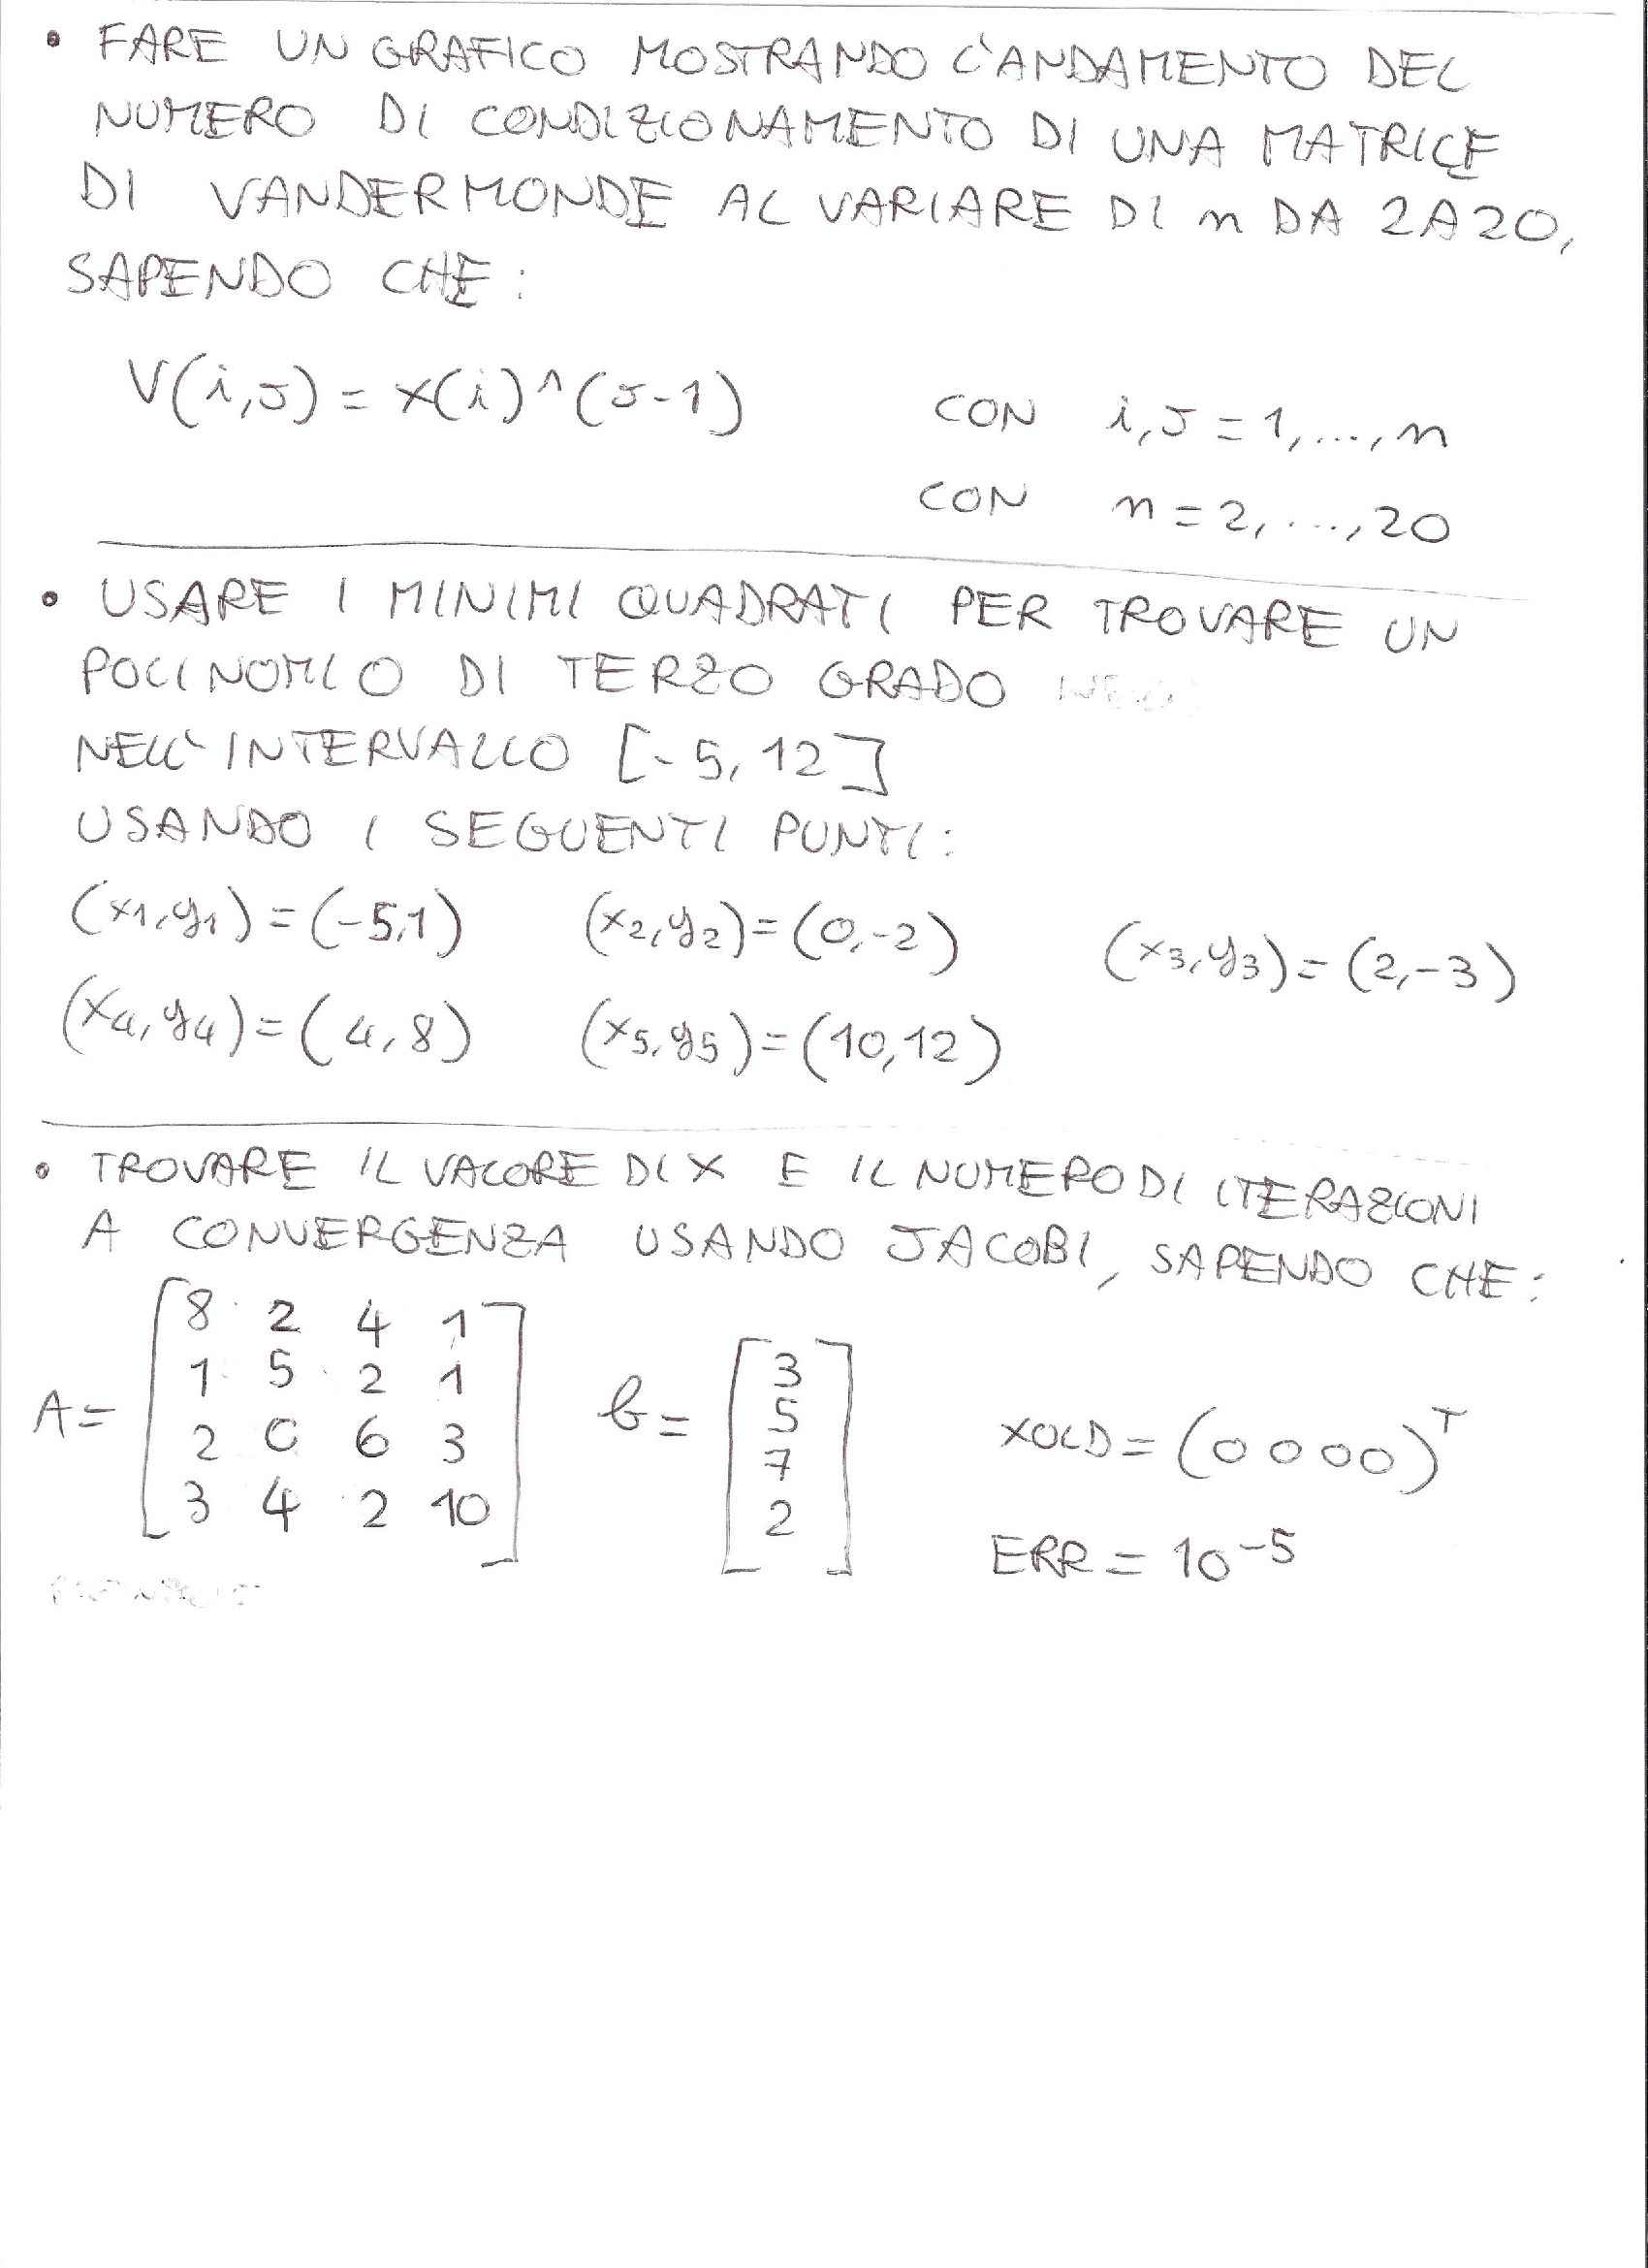 • FARE UN GRAFICO MOSTRANDO L'ANDAMENTO DEL
NUMERO DI CONDIZIONAMENTO DI UNA MATRICE
DI VANDERMONDE AL VARIARE DI n DA 2 A 20,
SAPENDO CHE:
V(i,J) = x(i)^(J-1) CON i,J = 1,...,n
CON n = 2,...,20
• USARE I MINIMI QUADRATI PER TROVARE UN
POLINOMIO DI TERZO GRADO
NELL'INTERVALLO [-5, 12]
USANDO I SEGUENTI PUNTI:
(x1,y1) = (-5,1) (x2,y2) = (0,-2) (x3,y3) = (2,-3)
(x4,y4) = (4,8) (x5,y5) = (10,12)
• TROVARE IL VALORE DI X E IL NUMERO DI ITERAZIONI
A CONVERGENZA USANDO JACOBI, SAPENDO CHE:
A = [8 2 4 1
1 5 2 1
2 0 6 3
3 4 2 10]
b = [3
5
7
2]
XOLD = (0 0 0 0)^T
ERR = 10^-5